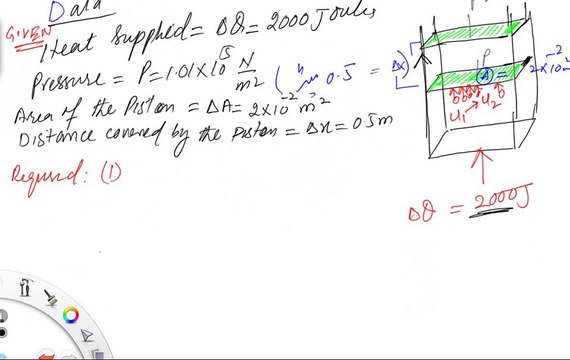 Data
GIVEN
Heat Supplied = ΔQ = 2000 Joules
Pressure = P = 1.01 × 10⁵ N/m²
0.5 =
Area of the Piston = ΔA = 2 × 10⁻² m²
Distance covered by the Piston = Δx = 0.5m
Required: (1)
Δx
P
A =
2 × 10⁻² m²
U₁ → U₂
ΔQ = 2000J